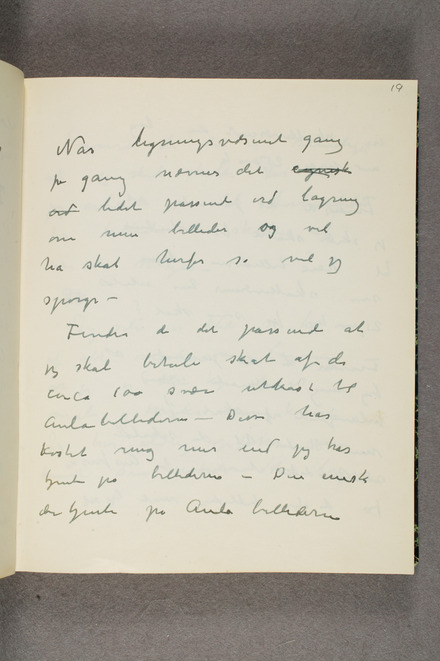 19
Når ligningsvæsenet gang
på gang nævner det
ved lidet passend ved lagning
om mine billeder og vil
ha skat herfor så vil jeg
spørge –
Finder de det passende at
jeg skal betale skat af de
circa 100 svære utkast til
Aulabillederne – Disse har
kostet mig mer end jeg har
tjent på billederne – Den eneste
der tjente på Aula billederne